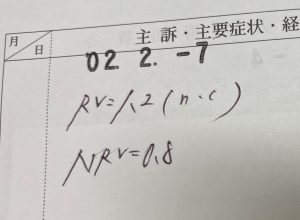 月
日
主訴・主要症状・経
02. 2. -7
RV=1.2(n.c)
NRV=0.8